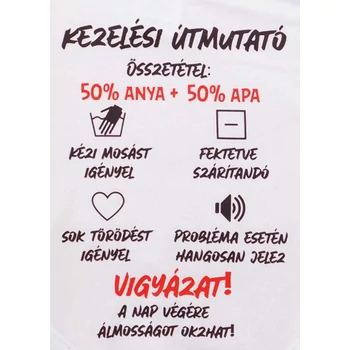 KEZELÉSI ÚTMUTATÓ
ÖSSZETÉTEL:
50% ANYA + 50% APA
KÉZI MOSÁST
IGÉNYEL
FEKTETVE
SZÁRÍTANDÓ
SOK TÖRŐDÉST
IGÉNYEL
PROBLÉMA ESETÉN
HANGOSAN JELEZ
VIGYÁZAT!
A NAP VÉGÉRE
ÁLMOSSÁGOT OKZHAT!